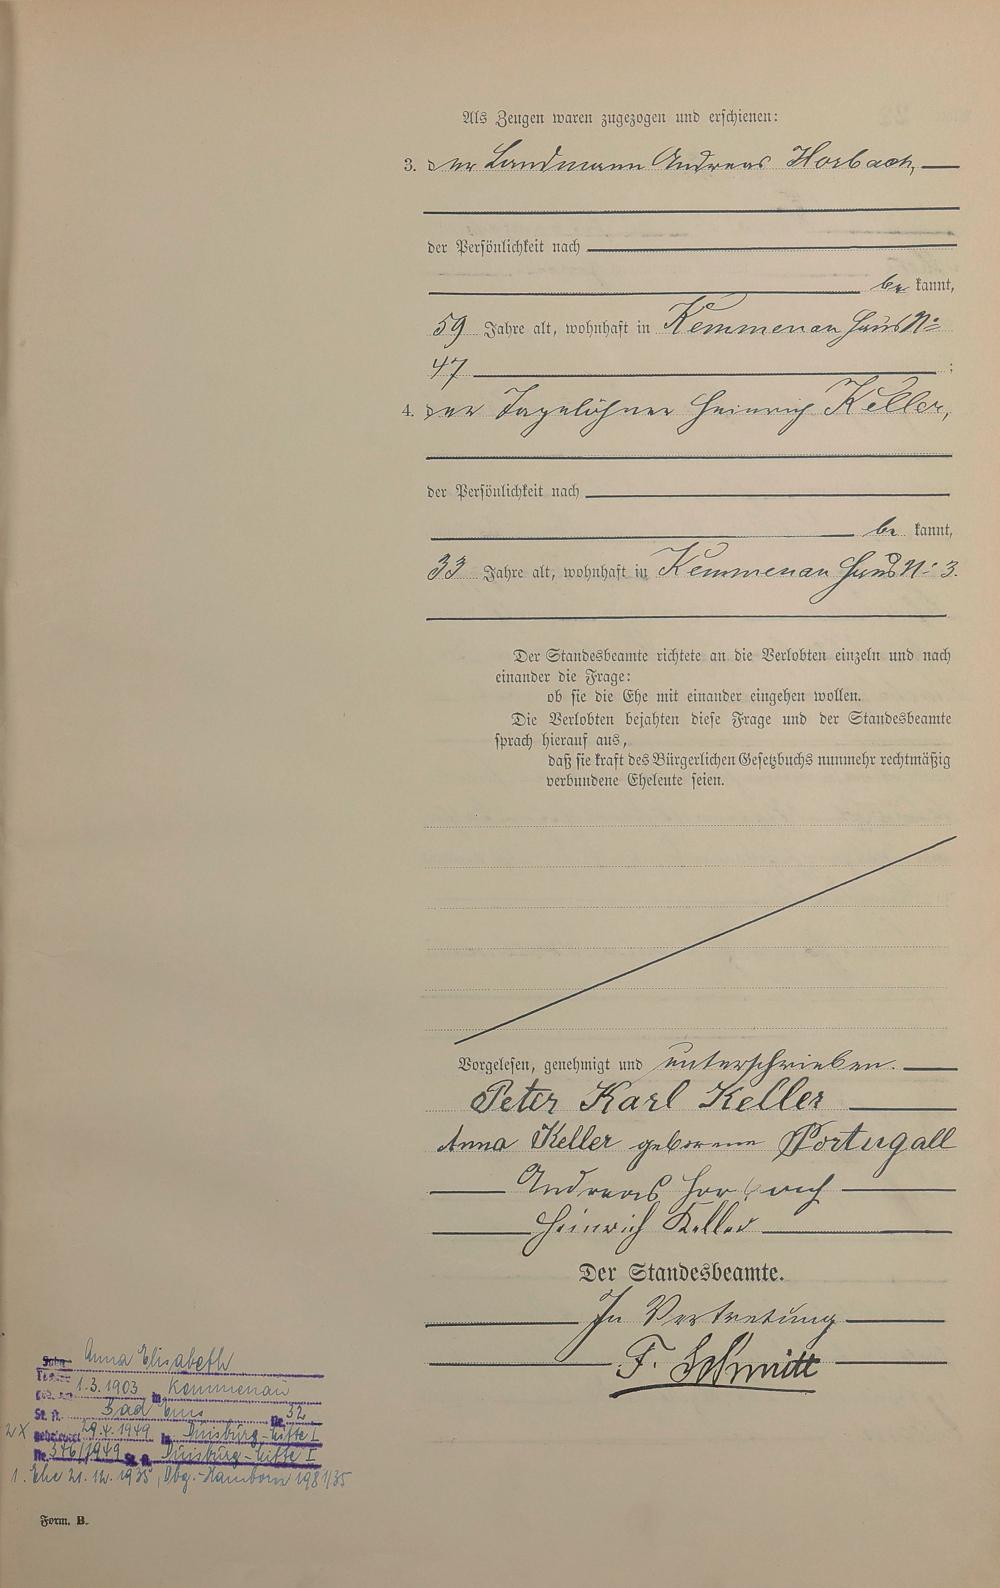 Als Zeugen waren zugezogen und erschienen:
3. der Landmann Andreas Horbach,
der Persönlichkeit nach
be kannt,
59 Jahre alt, wohnhaft in Kemmenau Haus No
47 ;
4. der Tagelöhner Heinrich Keller,
der Persönlichkeit nach
be kannt,
33 Jahre alt, wohnhaft in Kemmenau Haus No 3.
Der Standesbeamte richtete an die Verlobten einzeln und nach
einander die Frage:
ob sie die Ehe mit einander eingehen wollen.
Die Verlobten bejahten diese Frage und der Standesbeamte
sprach hierauf aus,
daß sie kraft des Bürgerlichen Gesetzbuchs nunmehr rechtmäßig
verbundene Eheleute seien.
Vorgelesen, genehmigt und unterschrieben.
Peter Karl Keller
Anna Keller geborene Portugall
Andreas Horbach
Heinrich Keller
Der Standesbeamte.
In Vertretung
F. Schmitt
Sohn Anna Elisabeth
Tochter
geb. am 1.3.1903 in Kemmenau
St. A. Bad Ems Nr. 32
2 X geheiratet 29.4.1949 in Duisburg-Mitte I
Nr. 376/1949 St. A. Duisburg-Mitte I
1. Ehe 21.12.1935, Dbg.-Hamborn 1981/35
Form. B.